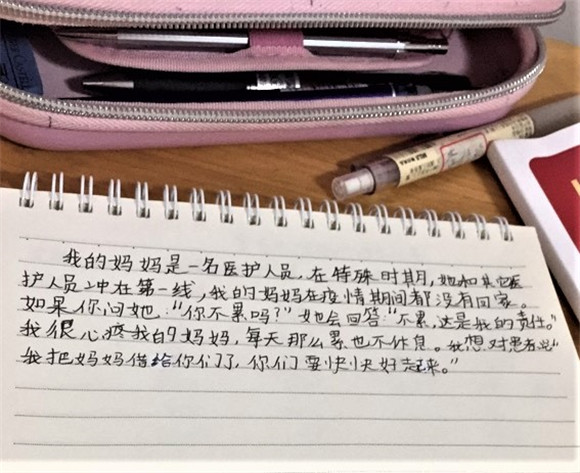 我的妈妈是一名医护人员,在特殊时期,她和其它医
护人员冲在第一线,我的妈妈在疫情期间都没有回家。
如果你问她:“你不累吗?”她会回答“不累,这是我的责任。”
我很心疼我的妈妈,每天那么累也不休息。我想对患者说“
我把妈妈借给你们了,你们要快快好起来。”